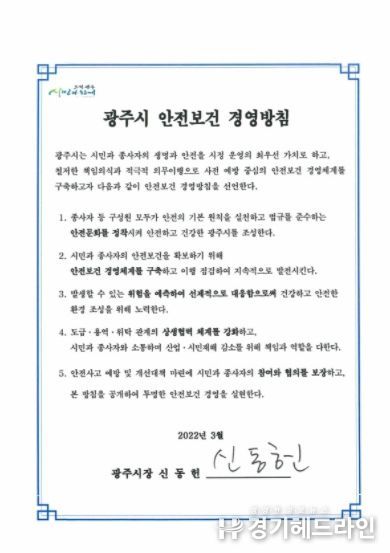 오직 광주
시민과 함께
광주시 안전보건 경영방침
광주시는 시민과 종사자의 생명과 안전을 시정 운영의 최우선 가치로 하고,
철저한 책임의식과 적극적 의무이행으로 사전 예방 중심의 안전보건 경영체계를
구축하고자 다음과 같이 안전보건 경영방침을 선언한다.
1. 종사자 등 구성원 모두가 안전의 기본 원칙을 실천하고 법규를 준수하는
안전문화를 정착시켜 안전하고 건강한 광주시를 조성한다.
2. 시민과 종사자의 안전보건을 확보하기 위해
안전보건 경영체계를 구축하고 이행 점검하여 지속적으로 발전시킨다.
3. 발생할 수 있는 위험을 예측하여 선제적으로 대응함으로써 건강하고 안전한
환경 조성을 위해 노력한다.
4. 도급·용역·위탁 관계의 상생협력 체계를 강화하고,
시민과 종사자와 소통하며 산업·시민재해 감소를 위해 책임과 역할을 다한다.
5. 안전사고 예방 및 개선대책 마련에 시민과 종사자의 참여와 협의를 보장하고,
본 방침을 공개하여 투명한 안전보건 경영을 실현한다.
2022년 3월
광주시장 신 동 헌 신동헌
경기헤드라인